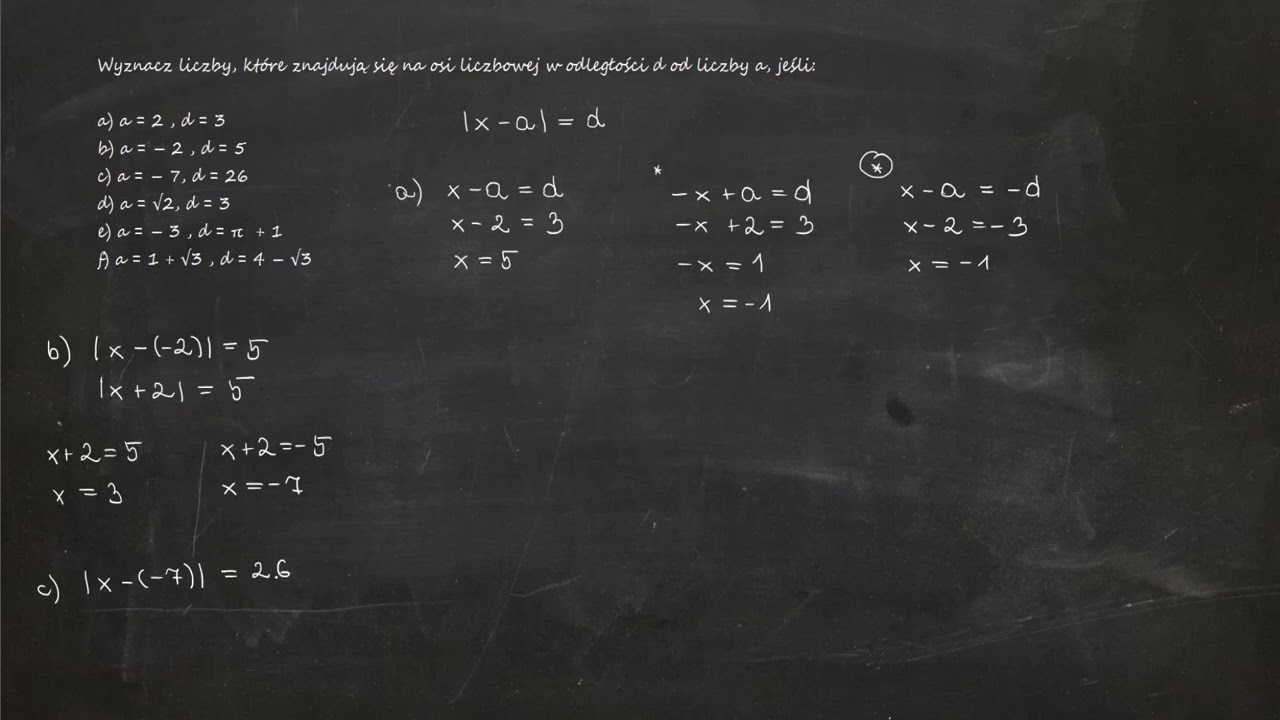 Wyznacz liczby, które znajdują się na osi liczbowej w odległości d od liczby a, jeśli:
a) a = 2 , d = 3
b) a = – 2 , d = 5
c) a = – 7, d = 26
d) a = √2, d = 3
e) a = – 3 , d = π + 1
f) a = 1 + √3 , d = 4 – √3
|x-a| = d
a) x-a = d
x-2 = 3
x = 5
*
-x+a = d
-x+2 = 3
-x = 1
x = -1
*
x-a = -d
x-2 = -3
x = -1
b) |x-(-2)| = 5
|x+2| = 5
x+2 = 5
x = 3
x+2 = -5
x = -7
c) |x-(-7)| = 2.6